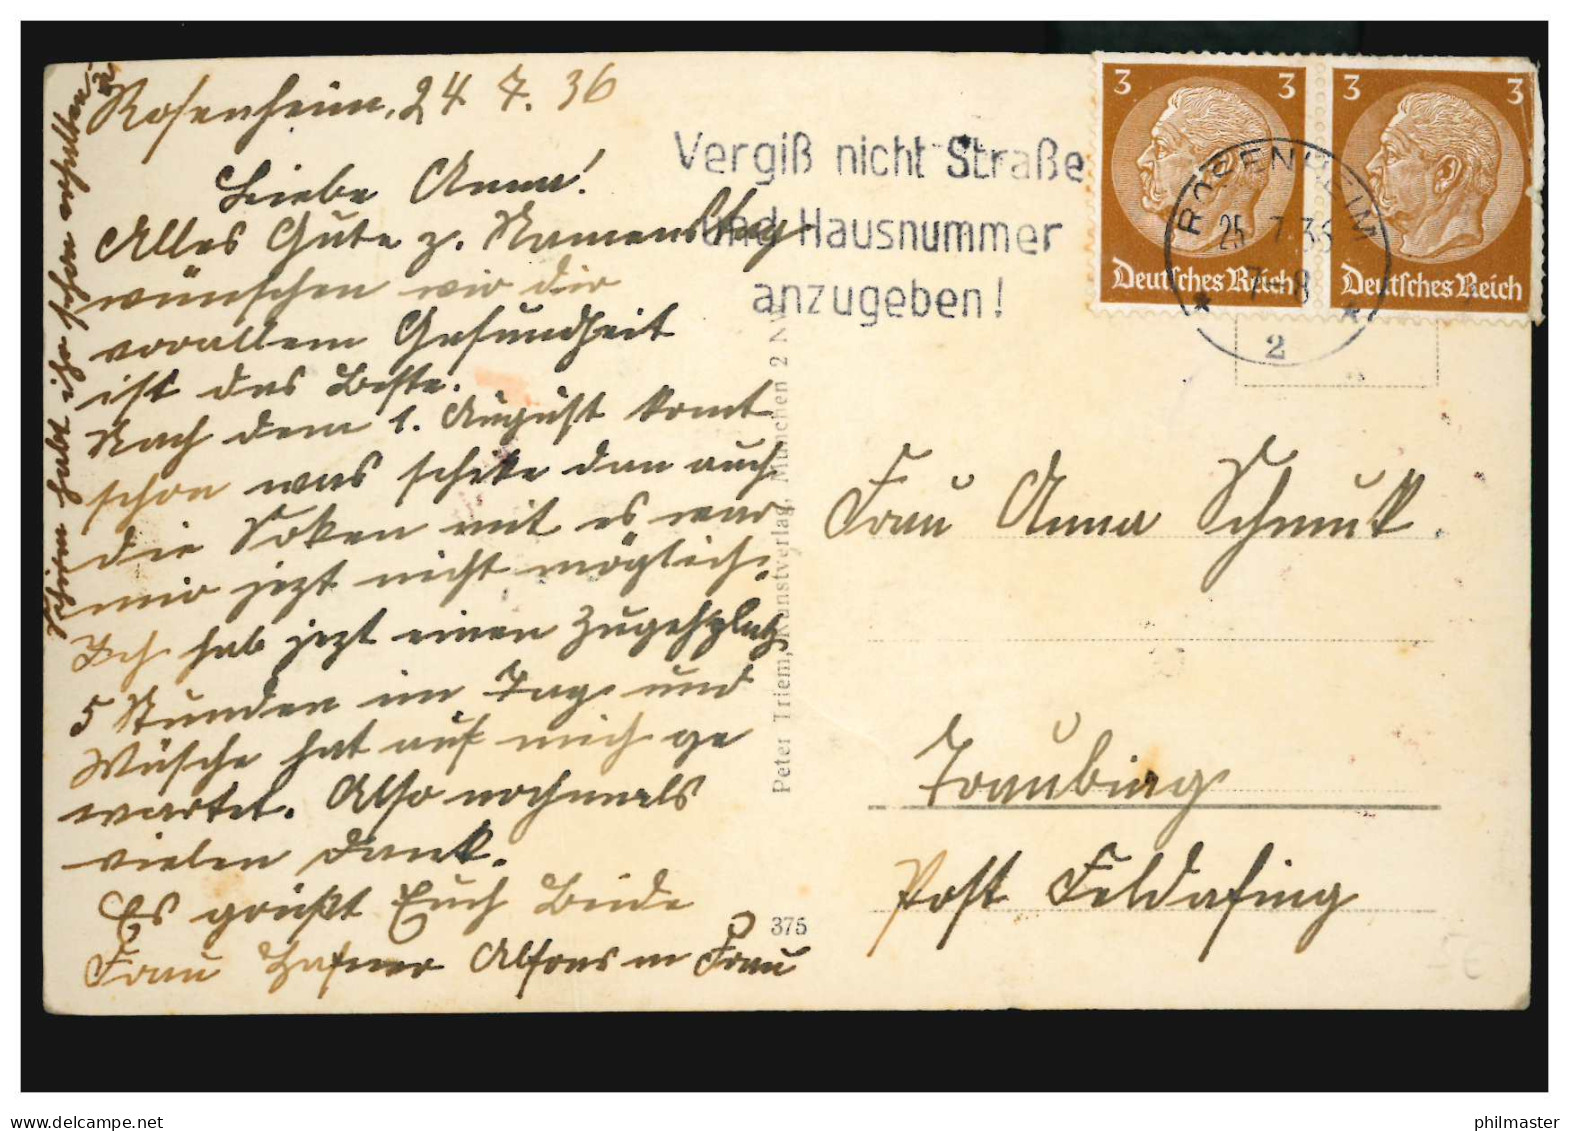 Rosenheim, 24. 7. 36
Liebe Anna!
Alles Gute z. Namenstag
wünschen wir dir
vorallem Gesundheit
ist das Beste.
Nach dem 1. August komt
schon was schike dan auch
die Soken mit es war
mir jezt nicht möglich.
Ich hab jezt einen Zugehplatz
5 Stunden im Tag und
Wäsche hat auf mich ge
wartet. Also nochmals
vielen Dank.
Es grüßt Euch Beide
Frau Hafner Alfons u Frau
Schirm habt ihr schon erhalten
Vergiß nicht Straße
und Hausnummer
anzugeben!
3 3
Deutsches Reich
3 3
Deutsches Reich
ROSENHEIM
25 7.36
7-8
2
Peter Triem, Kunstverlag, München 2 NW
375
Frau Anna Schmuk.
Traubing
Post Feldafing
www.delcampe.net
philmaster